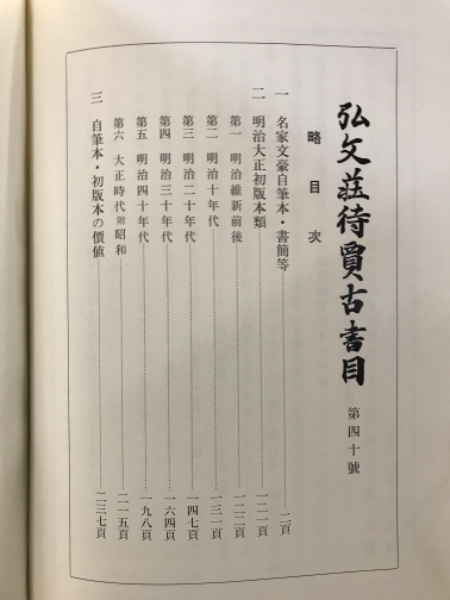 弘文荘待賈古書目 第四十號
略目次
一 名家文豪自筆本・書簡等 二頁
二 明治大正初版本類 一二一頁
第一 明治維新前後 一二二頁
第二 明治十年代 一三一頁
第三 明治二十年代 一四七頁
第四 明治三十年代 一六四頁
第五 明治四十年代 一九八頁
第六 大正時代附昭和 二一五頁
三 自筆本・初版本の價値 二三七頁